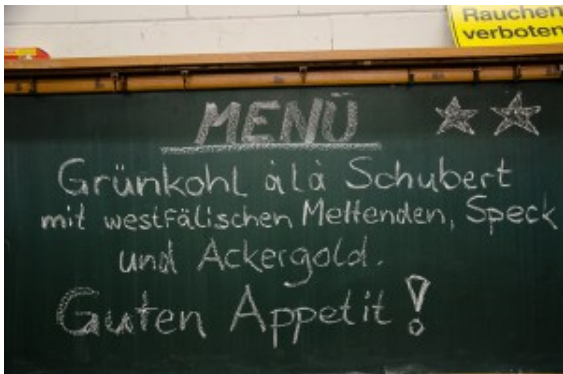 Rauchen
verboten
MENÜ
Grünkohl àlà Schubert
mit westfälischen Mettenden, Speck
und Ackergold.
Guten Appetit!